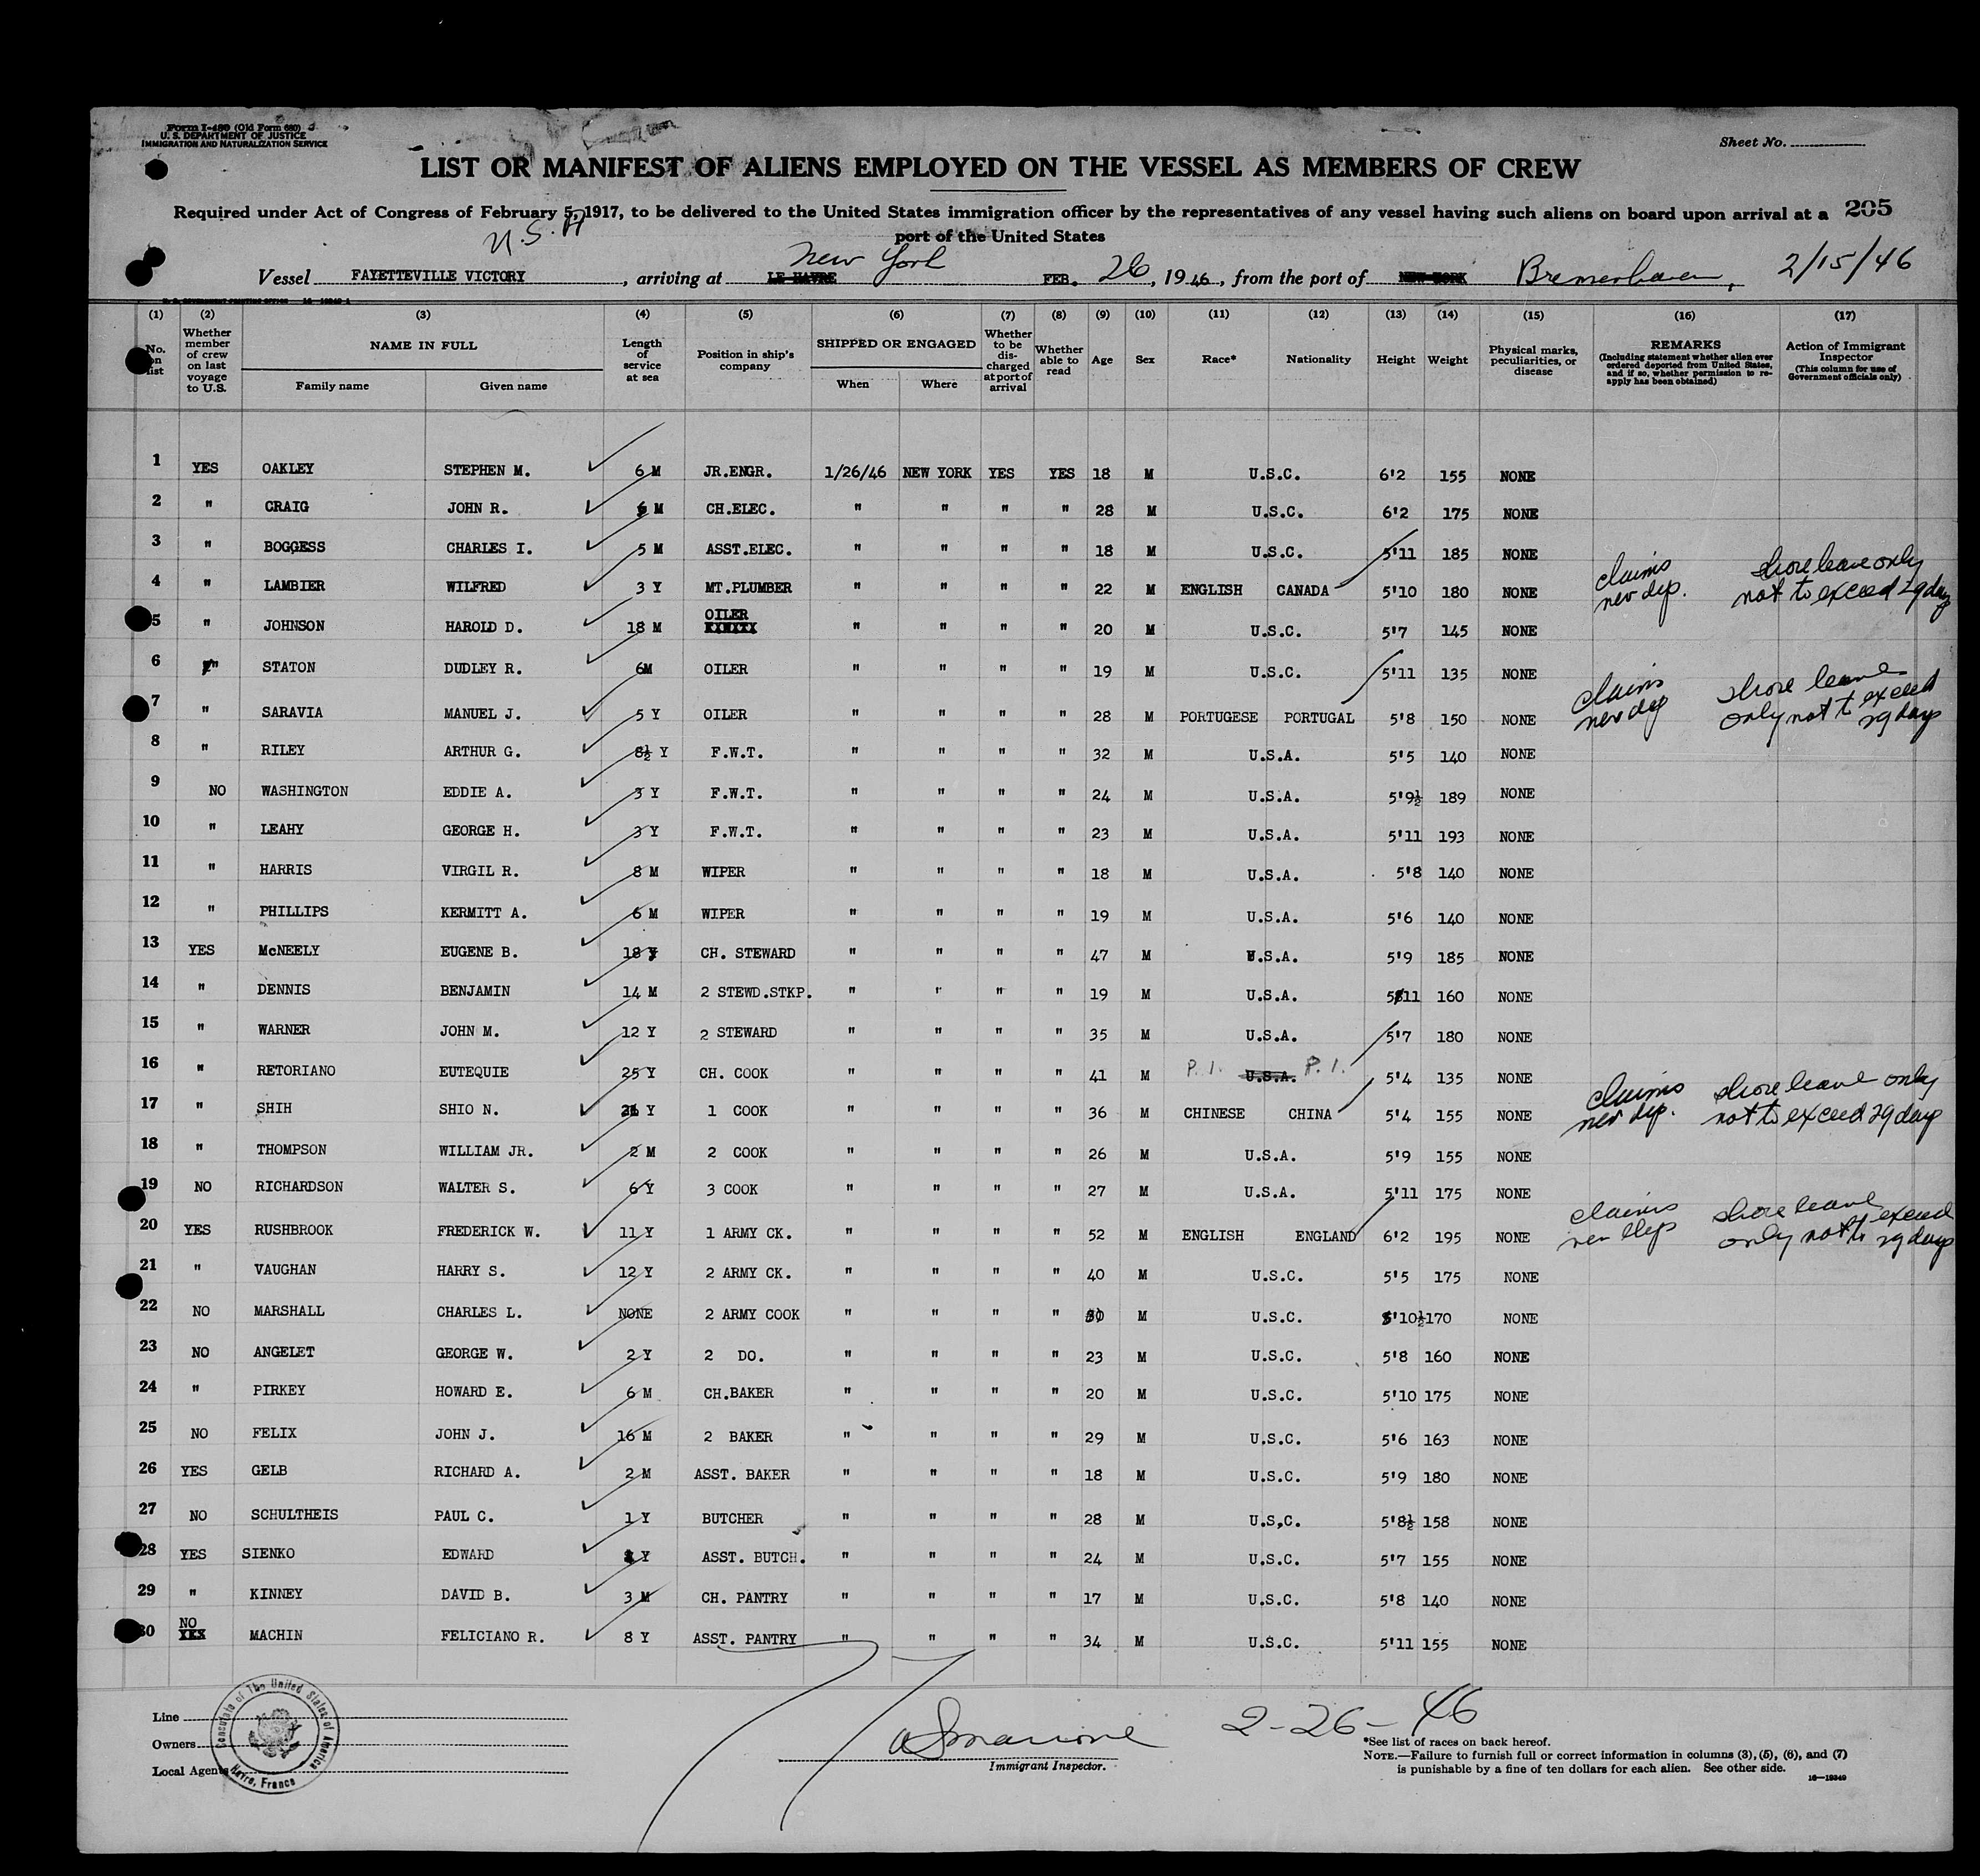 Form I-480 (Old Form 680)
U. S. DEPARTMENT OF JUSTICE
IMMIGRATION AND NATURALIZATION SERVICE
Sheet No.
LIST OR MANIFEST OF ALIENS EMPLOYED ON THE VESSEL AS MEMBERS OF CREW
Required under Act of Congress of February 5, 1917, to be delivered to the United States immigration officer by the representatives of any vessel having such aliens on board upon arrival at a 205
port of the United States
U.S.A
Vessel FAYETTEVILLE VICTORY, arriving at LE HAVRE New York FEB. 26, 1946, from the port of NEW YORK Bremerhaven, 2/15/46
(1) (2) (3) (4) (5) (6) (7) (8) (9) (10) (11) (12) (13) (14) (15) (16) (17)
No. on list Whether member of crew on last voyage to U.S. NAME IN FULL Family name Given name Length of service at sea Position in ship's company SHIPPED OR ENGAGED When Where Whether to be discharged at port of arrival Whether able to read Age Sex Race* Nationality Height Weight Physical marks, peculiarities, or disease REMARKS (Including statement whether alien ever ordered deported from United States, and if so, whether permission to re-apply has been obtained) Action of Immigrant Inspector (This column for use of Government officials only)
1 YES OAKLEY STEPHEN M. 6 M JR.ENGR. 1/26/46 NEW YORK YES YES 18 M U.S.C. 6'2 155 NONE
2 " CRAIG JOHN R. M CH.ELEC. " " " " 28 M U.S.C. 6'2 175 NONE
3 " BOGGESS CHARLES I. 5 M ASST.ELEC. " " " " 18 M U.S.C. 5'11 185 NONE
4 " LAMBIER WILFRED 3 Y MT.PLUMBER " " " " 22 M ENGLISH CANADA 5'10 180 NONE claims nev dep. shore leave only not to exceed 29 days
5 " JOHNSON HAROLD D. 18 M OILER " " " " 20 M U.S.C. 5'7 145 NONE
6 " STATON DUDLEY R. 6M OILER " " " " 19 M U.S.C. 5'11 135 NONE
7 " SARAVIA MANUEL J. 5 Y OILER " " " " 28 M PORTUGESE PORTUGAL 5'8 150 NONE claims nev dep shore leave only not to exceed 29 days
8 " RILEY ARTHUR G. 8½ Y F.W.T. " " " " 32 M U.S.A. 5'5 140 NONE
9 NO WASHINGTON EDDIE A. 3 Y F.W.T. " " " " 24 M U.S.A. 5'9½ 189 NONE
10 " LEAHY GEORGE H. 3 Y F.W.T. " " " " 23 M U.S.A. 5'11 193 NONE
11 " HARRIS VIRGIL R. 8 M WIPER " " " " 18 M U.S.A. 5'8 140 NONE
12 " PHILLIPS KERMITT A. 6 M WIPER " " " " 19 M U.S.A. 5'6 140 NONE
13 YES McNEELY EUGENE B. 18 Y CH. STEWARD " " " " 47 M U.S.A. 5'9 185 NONE
14 " DENNIS BENJAMIN 14 M 2 STEWD.STKP. " " " " 19 M U.S.A. 5'11 160 NONE
15 " WARNER JOHN M. 12 Y 2 STEWARD " " " " 35 M U.S.A. 5'7 180 NONE
16 " RETORIANO EUTEQUIE 25 Y CH. COOK " " " " 41 M P.I. U.S.A. P.I. 5'4 135 NONE
17 " SHIH SHIO N. Y 1 COOK " " " " 36 M CHINESE CHINA 5'4 155 NONE claims nev dep. shore leave only not to exceed 29 days
18 " THOMPSON WILLIAM JR. 2 M 2 COOK " " " " 26 M U.S.A. 5'9 155 NONE
19 NO RICHARDSON WALTER S. 6 Y 3 COOK " " " " 27 M U.S.A. 5'11 175 NONE
20 YES RUSHBROOK FREDERICK W. 11 Y 1 ARMY CK. " " " " 52 M ENGLISH ENGLAND 6'2 195 NONE claims nev dep shore leave only not to exceed 29 days
21 " VAUGHAN HARRY S. 12 Y 2 ARMY CK. " " " " 40 M U.S.C. 5'5 175 NONE
22 NO MARSHALL CHARLES L. NONE 2 ARMY COOK " " " " M U.S.C. 5'10½ 170 NONE
23 NO ANGELET GEORGE W. 2 Y 2 DO. " " " " 23 M U.S.C. 5'8 160 NONE
24 " PIRKEY HOWARD E. 6 M CH.BAKER " " " " 20 M U.S.C. 5'10 175 NONE
25 NO FELIX JOHN J. 16 M 2 BAKER " " " " 29 M U.S.C. 5'6 163 NONE
26 YES GELB RICHARD A. 2 M ASST. BAKER " " " " 18 M U.S.C. 5'9 180 NONE
27 NO SCHULTHEIS PAUL C. 1 Y BUTCHER " " " " 28 M U.S.C. 5'8½ 158 NONE
28 YES SIENKO EDWARD Y ASST. BUTCH. " " " " 24 M U.S.C. 5'7 155 NONE
29 " KINNEY DAVID B. 3 M CH. PANTRY " " " " 17 M U.S.C. 5'8 140 NONE
30 NO MACHIN FELICIANO R. 8 Y ASST. PANTRY " " " " 34 M U.S.C. 5'11 155 NONE
Line
Owners
Local Agents
Consulate of The United States of America
Havre, France
2-26-46
Immigrant Inspector.
*See list of races on back hereof.
NOTE.—Failure to furnish full or correct information in columns (3), (5), (6), and (7)
is punishable by a fine of ten dollars for each alien. See other side.
16—19340